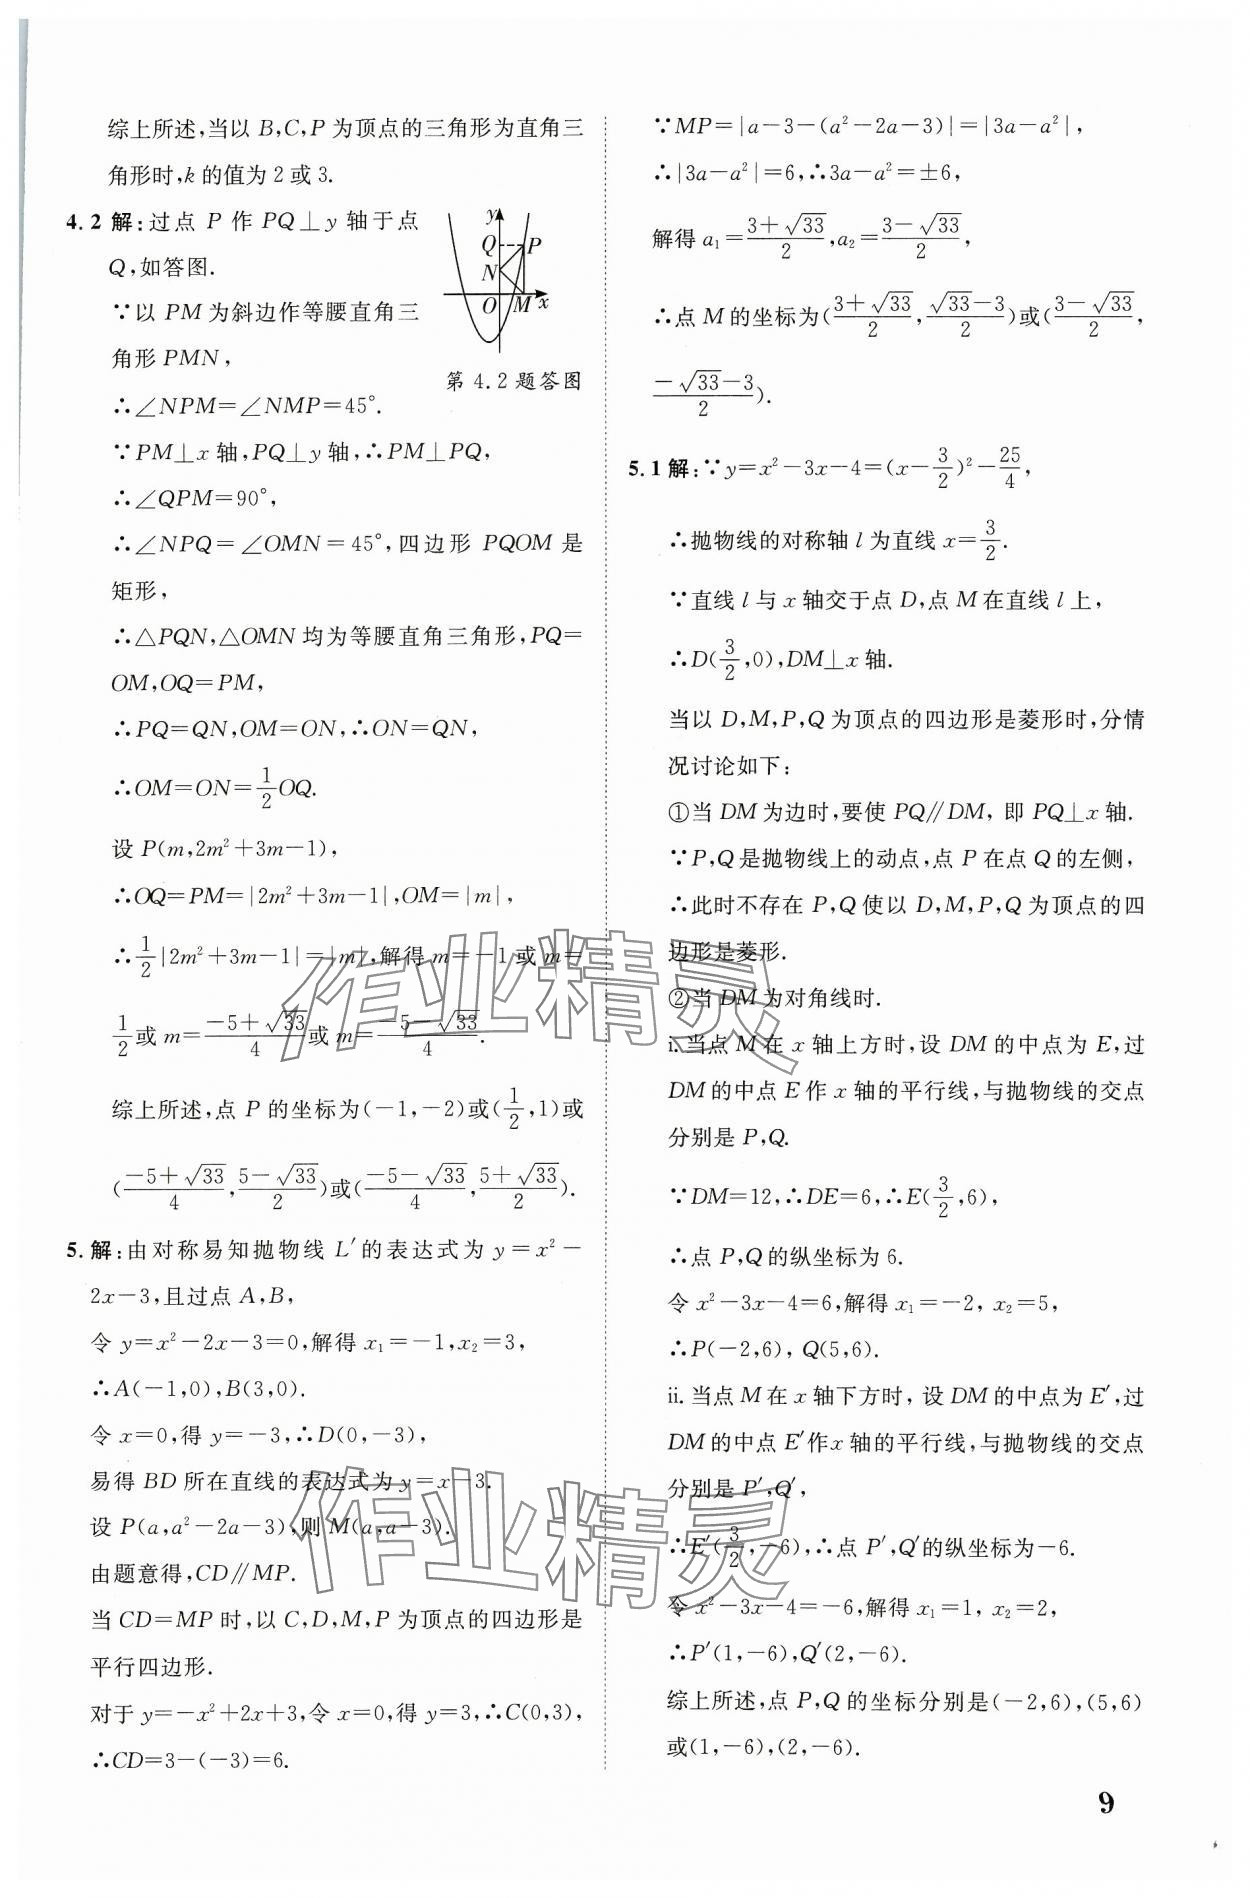 综上所述,当以 B,C,P 为顶点的三角形为直角三
角形时,k 的值为 2 或 3.
4.2 解:过点 P 作 PQ⊥y 轴于点
Q,如答图.
∵以 PM 为斜边作等腰直角三
角形 PMN,
y
Q
P
N
O
M
x
第 4.2 题答图
∴∠NPM=∠NMP=45°.
∵PM⊥x 轴,PQ⊥y 轴,∴PM⊥PQ,
∴∠QPM=90°,
∴∠NPQ=∠OMN=45°,四边形 PQOM 是
矩形,
∴△PQN,△OMN 均为等腰直角三角形,PQ=
OM,OQ=PM,
∴PQ=QN,OM=ON,∴ON=QN,
∴OM=ON=1/2OQ.
设 P(m,2m²+3m-1),
∴OQ=PM=|2m²+3m-1|,OM=|m|,
∴1/2|2m²+3m-1|=|m|,解得 m=-1 或 m=
1/2或 m=(-5+√33)/4或 m=(-5-√33)/4.
综上所述,点 P 的坐标为(-1,-2)或(1/2,1)或
((-5+√33)/4,(5-√33)/2)或((-5-√33)/4,(5+√33)/2).
5.解:由对称易知抛物线 L′的表达式为 y=x²-
2x-3,且过点 A,B,
令 y=x²-2x-3=0,解得 x₁=-1,x₂=3,
∴A(-1,0),B(3,0).
令 x=0,得 y=-3,∴D(0,-3),
易得 BD 所在直线的表达式为 y=x-3.
设 P(a,a²-2a-3),则 M(a,a-3).
由题意得,CD∥MP.
当 CD=MP 时,以 C,D,M,P 为顶点的四边形是
平行四边形.
对于 y=-x²+2x+3,令 x=0,得 y=3,∴C(0,3),
∴CD=3-(-3)=6.
∵MP=|a-3-(a²-2a-3)|=|3a-a²|,
∴|3a-a²|=6,∴3a-a²=±6,
解得 a₁=(3+√33)/2,a₂=(3-√33)/2,
∴点 M 的坐标为((3+√33)/2,(√33-3)/2)或((3-√33)/2,
(-√33-3)/2).
5.1 解:∵y=x²-3x-4=(x-3/2)²-25/4,
∴抛物线的对称轴 l 为直线 x=3/2.
∵直线 l 与 x 轴交于点 D,点 M 在直线 l 上,
∴D(3/2,0),DM⊥x 轴.
当以 D,M,P,Q 为顶点的四边形是菱形时,分情
况讨论如下:
①当 DM 为边时,要使 PQ∥DM, 即 PQ⊥x 轴.
∵P,Q是抛物线上的动点,点 P 在点 Q 的左侧,
∴此时不存在 P,Q使以 D,M,P,Q 为顶点的四
边形是菱形.
②当 DM 为对角线时.
i. 当点 M 在 x 轴上方时,设 DM 的中点为 E,过
DM 的中点 E 作 x 轴的平行线,与抛物线的交点
分别是 P,Q.
∵DM=12,∴DE=6,∴E(3/2,6),
∴点 P,Q 的纵坐标为 6.
令 x²-3x-4=6,解得 x₁=-2, x₂=5,
∴P(-2,6), Q(5,6).
ii. 当点 M 在 x 轴下方时, 设 DM 的中点为 E′,过
DM 的中点 E′作 x 轴的平行线,与抛物线的交点
分别是 P′,Q′,
∴E′(3/2,-6),∴点 P′,Q′的纵坐标为-6.
令 x²-3x-4=-6,解得 x₁=1, x₂=2,
∴P′(1,-6),Q′(2,-6).
综上所述,点 P,Q 的坐标分别是(-2,6),(5,6)
或(1,-6),(2,-6).
作业精灵
作业精灵
9